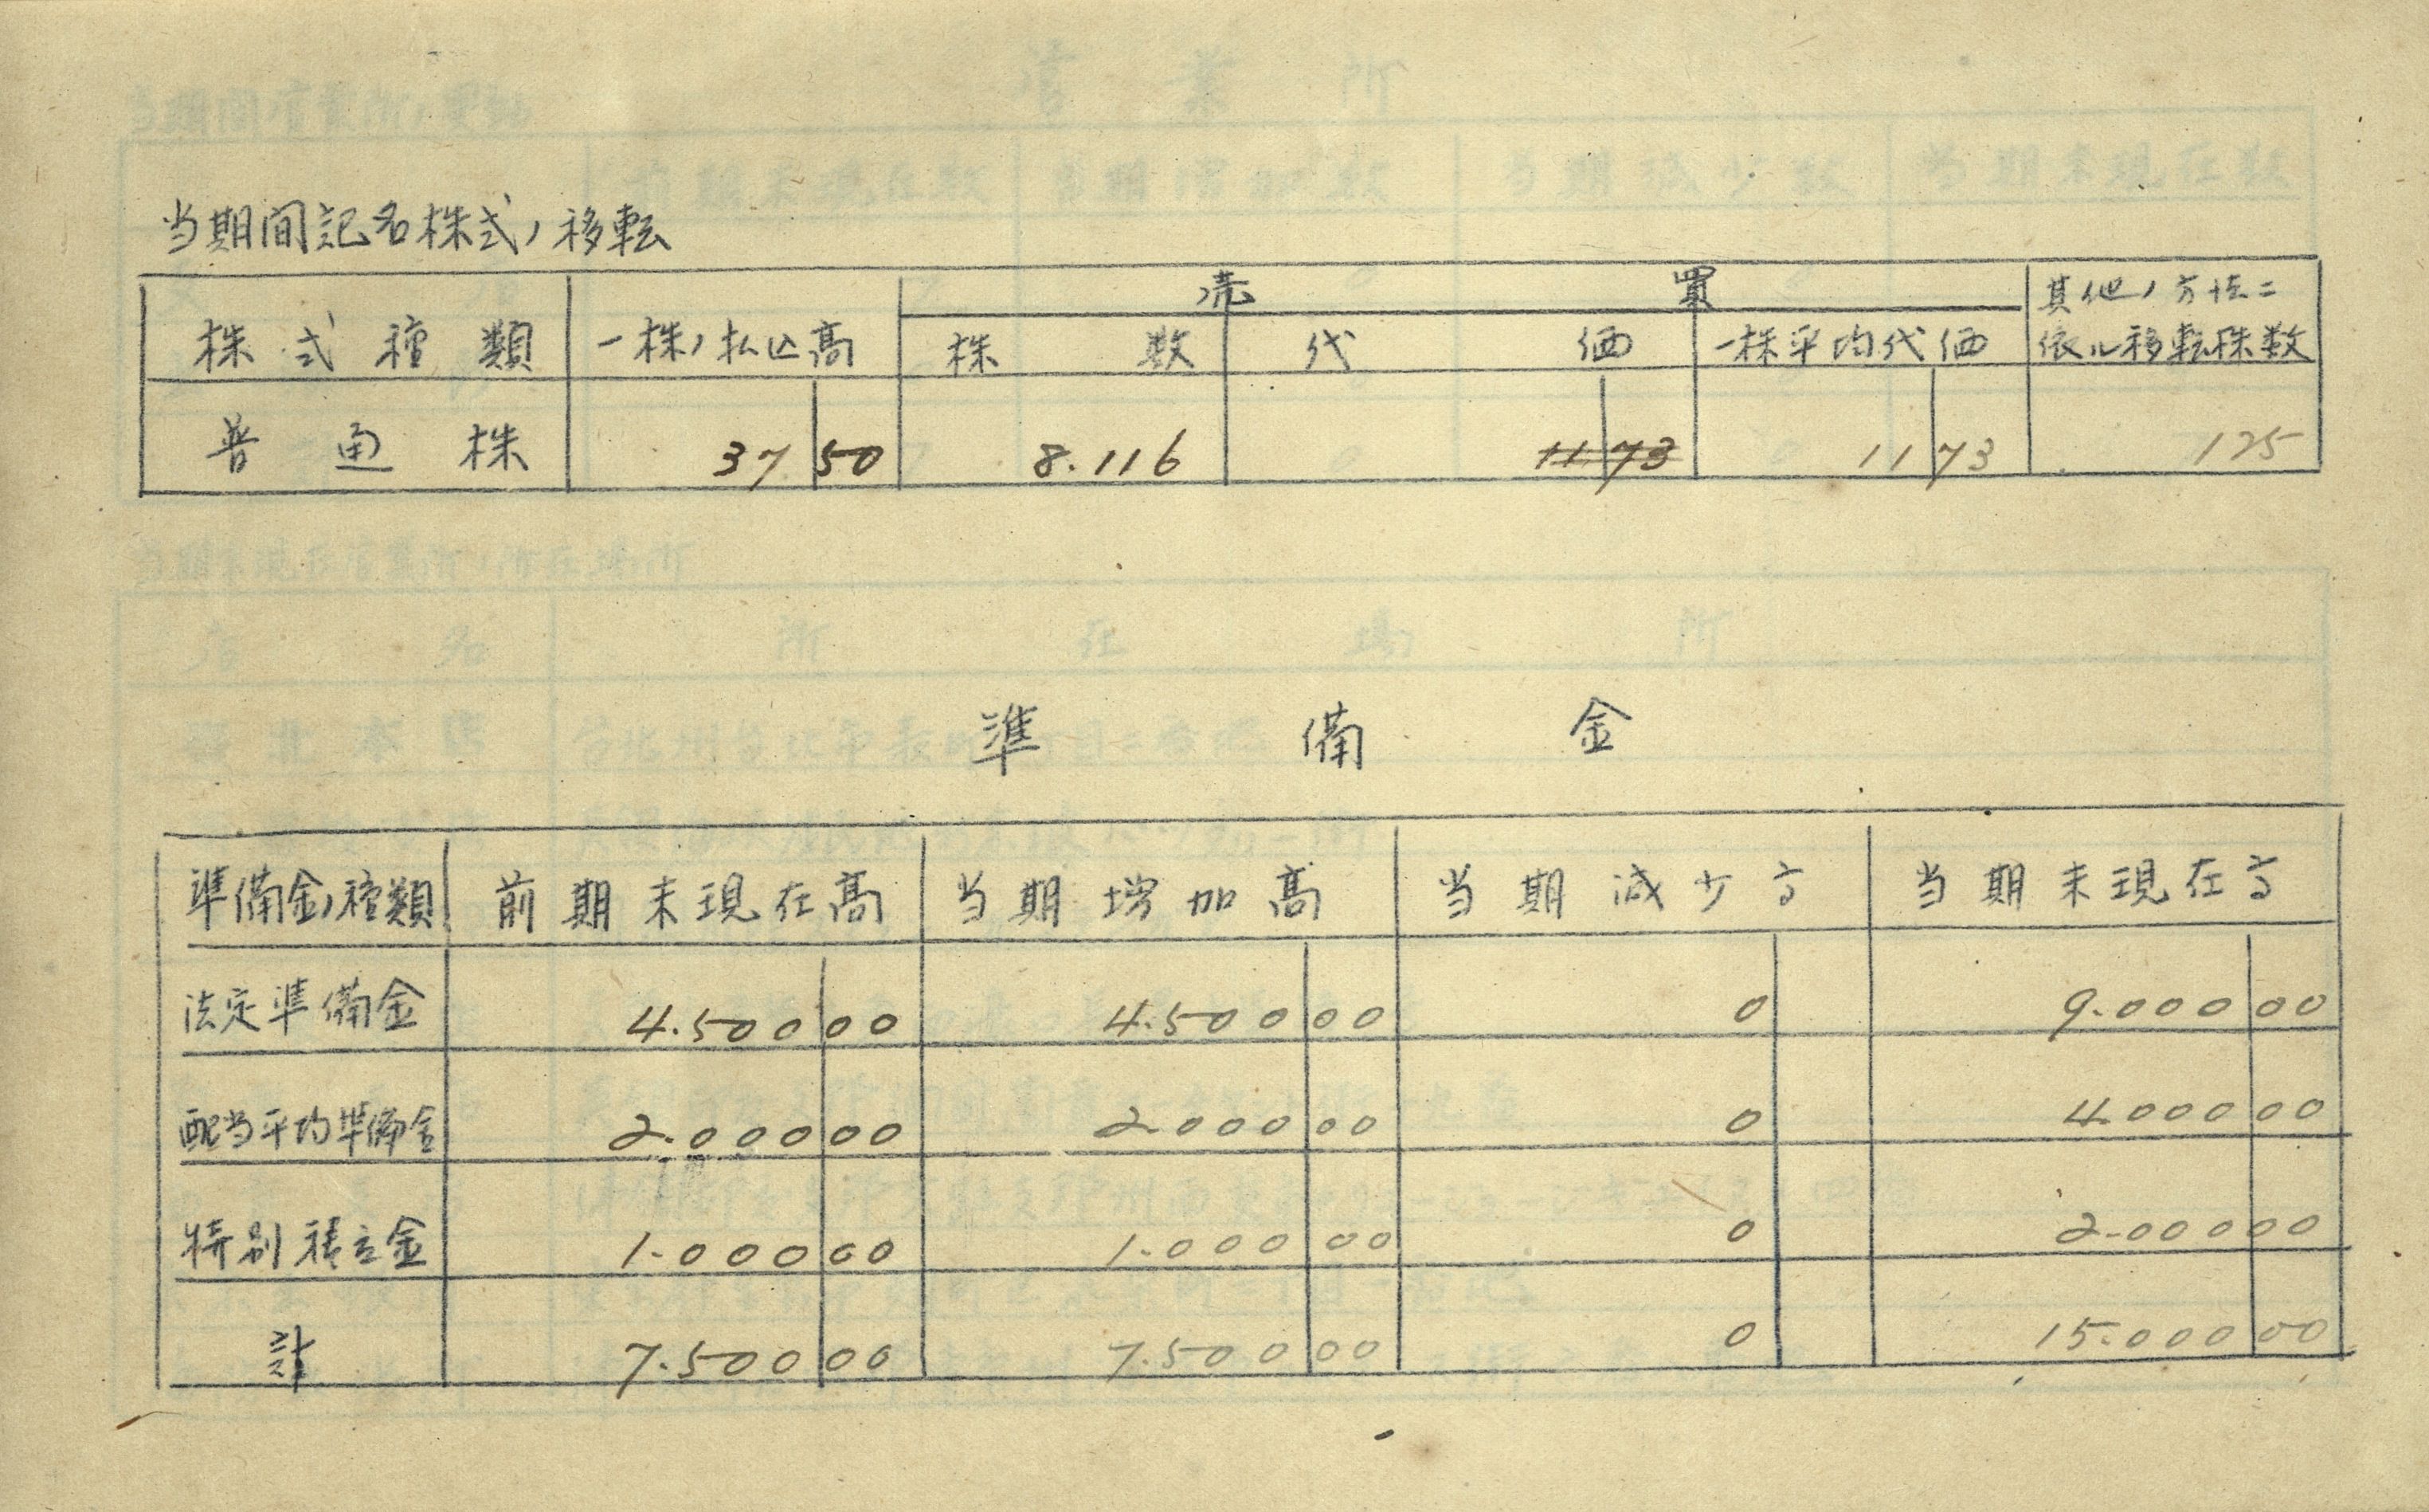 当期间記名株式ノ移転
株式種類 一株ノ払込高 売買 其他ノ方法ニ依ル移転株数
株数 代価 一株平均代価
普通株 37 50 8.116 11 73 11 73 125
準備金
準備金ノ種類 前期末現在高 当期増加高 当期減少高 当期末現在高
法定準備金 4.500 00 4.500 00 0 9.000 00
配当平均準備金 2.000 00 2.000 00 0 4.000 00
特別積立金 1.000 00 1.000 00 0 2.000 00
計 7.500 00 7.500 00 0 15.000 00